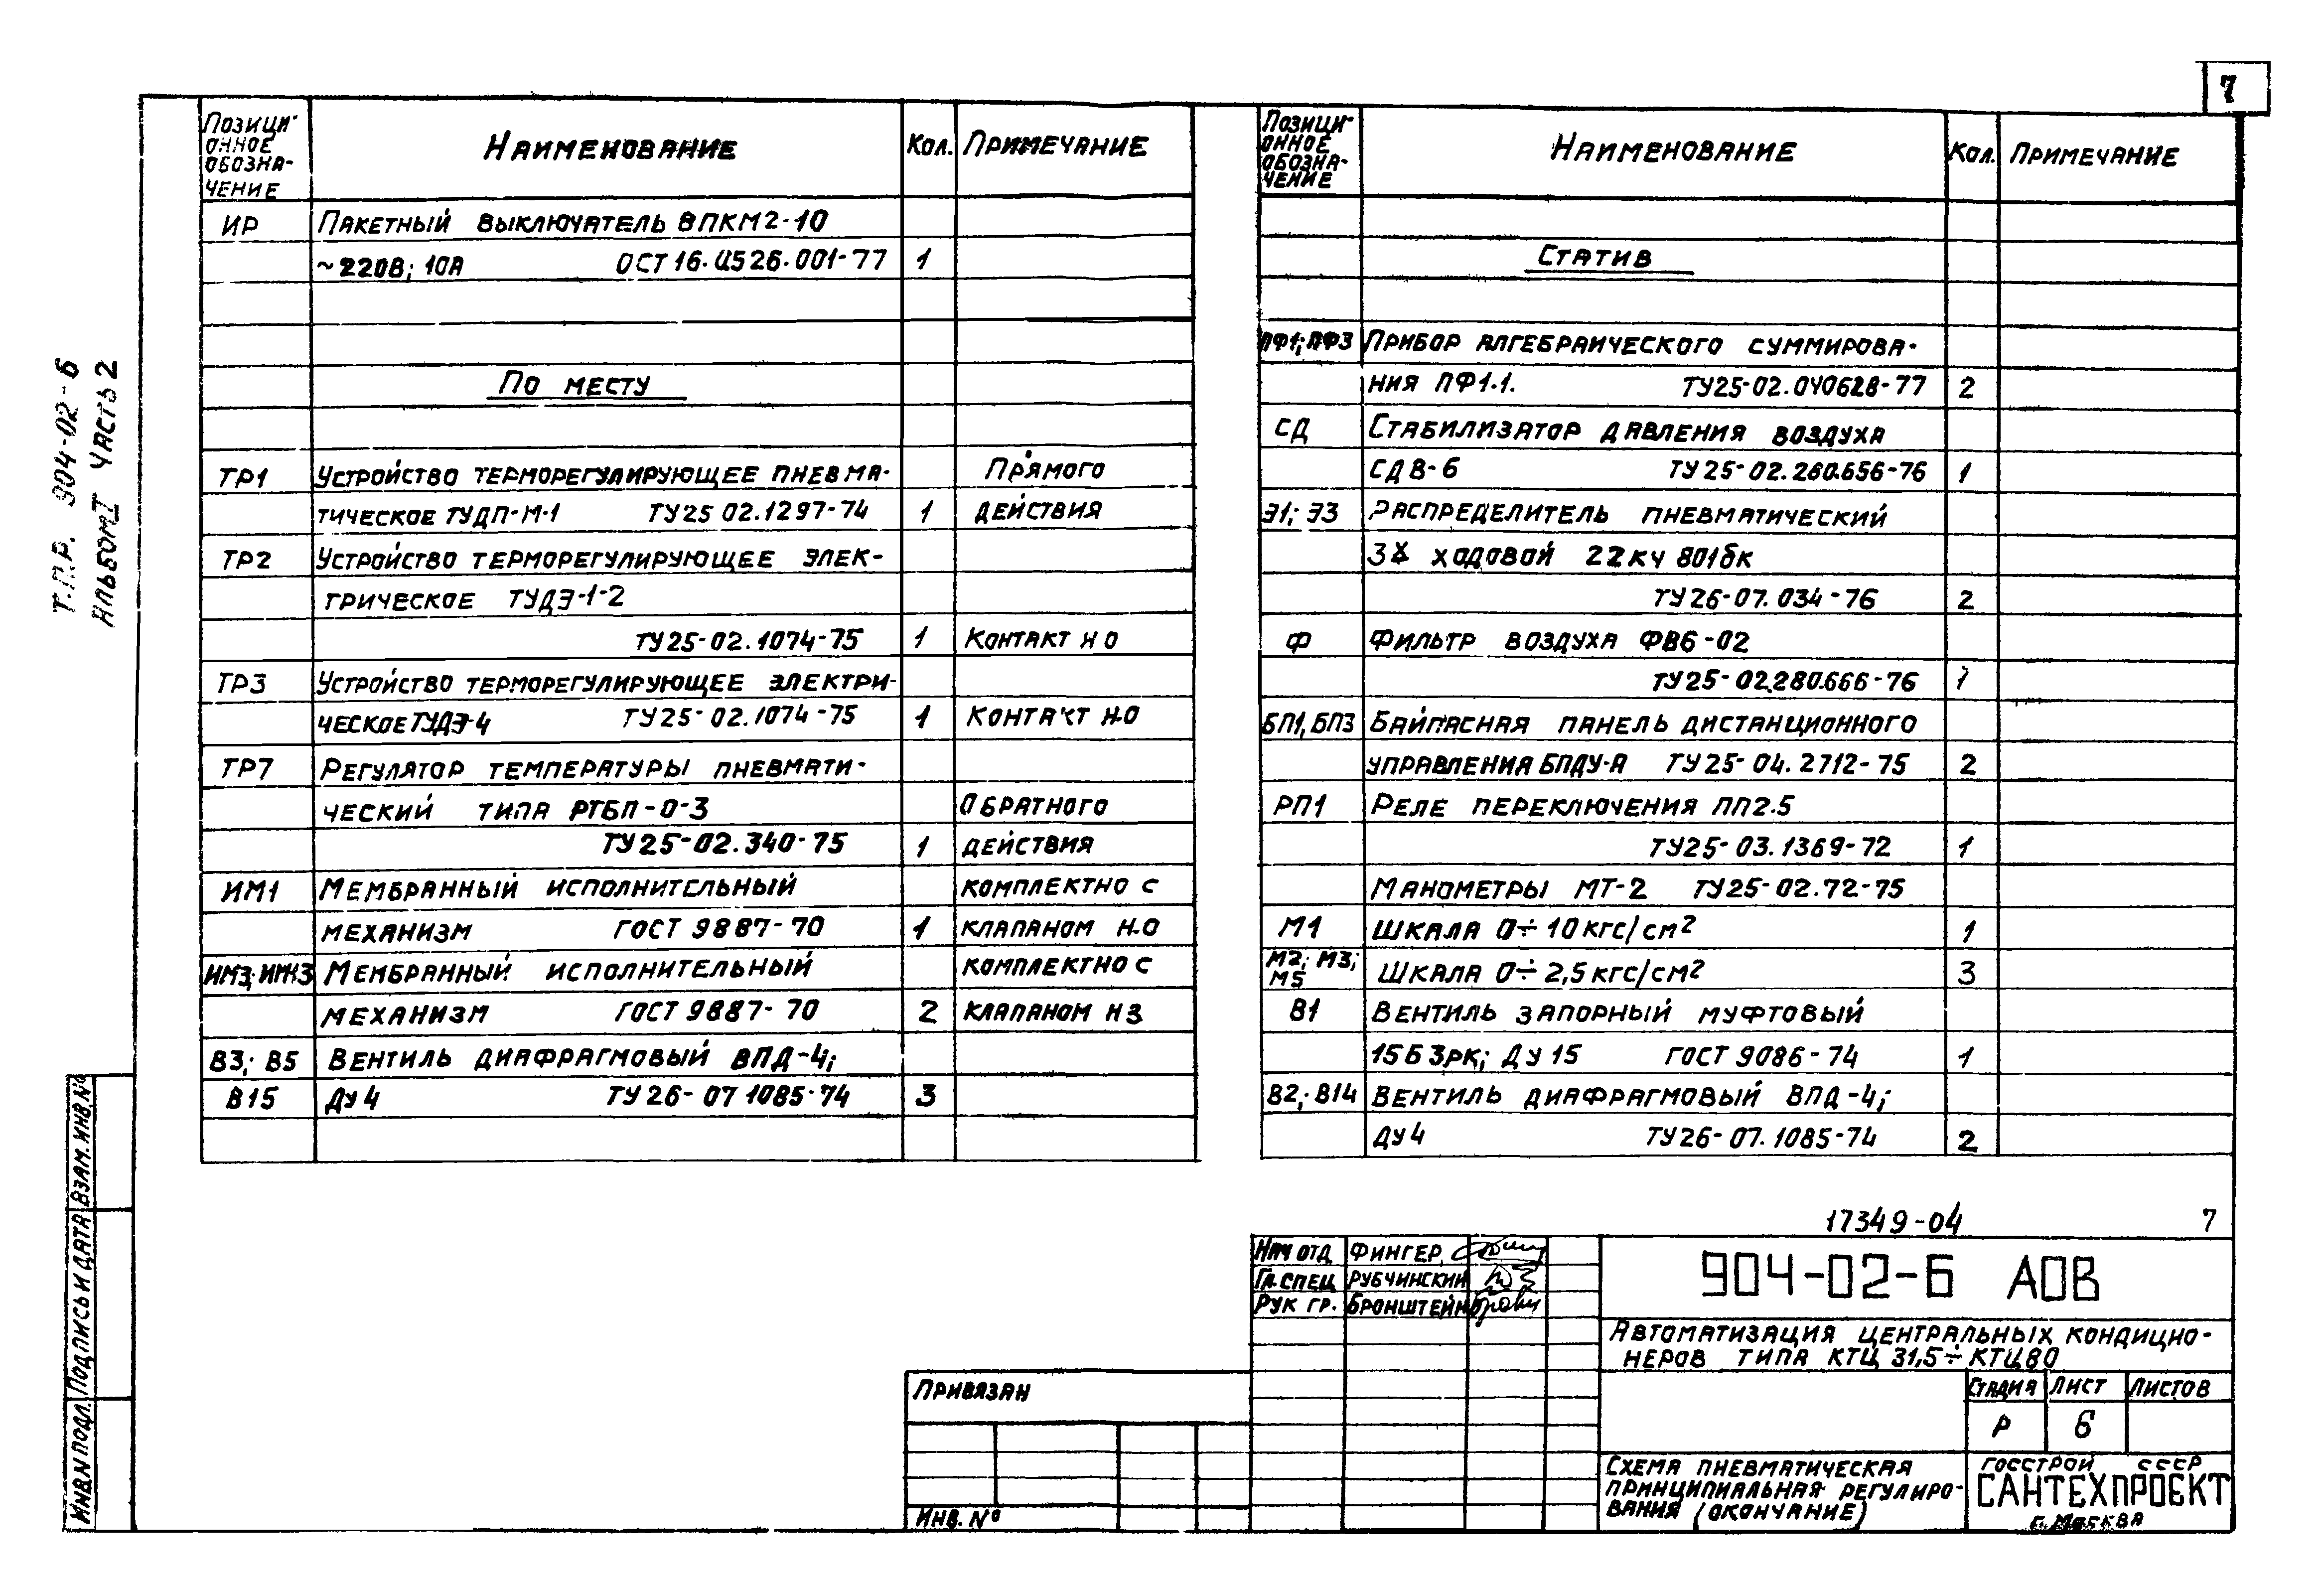 7
Т.П.Р. 904-02-6
Альбом I Часть 2
Позици- Наименование Кол. Примечание
онное
обозна-
чение
ИР Пакетный выключатель ВПКМ2-10
~220В; 10А ОСТ 16.0526.001-77 1
По месту
ТР1 Устройство терморегулирующее пневма- Прямого
тическое ТУДП-М-1 ТУ25 02.1297-74 1 действия
ТР2 Устройство терморегулирующее элек-
трическое ТУДЭ-1-2
ТУ25-02.1074-75 1 Контакт Н О
ТР3 Устройство терморегулирующее электри-
ческое ТУДЭ-4 ТУ25-02.1074-75 1 Контакт Н.О
ТР7 Регулятор температуры пневмати-
ческий типа РТБП-0-3 Обратного
ТУ25-02.340-75 1 действия
ИМ1 Мембранный исполнительный комплектно с
механизм ГОСТ 9887-70 1 клапаном Н.О
ИМ3; ИМ13 Мембранный исполнительный комплектно с
механизм ГОСТ 9887-70 2 клапаном Н З
В3; В5 Вентиль диафрагмовый ВПД-4;
В15 Ду 4 ТУ 26-07 1085-74 3
Позици- Наименование Кол. Примечание
онное
обозна-
чение
Статив
ПФ1; ПФ3 Прибор алгебраического суммирова-
ния ПФ1.1. ТУ25-02.040628-77 2
СД Стабилизатор давления воздуха
СДВ-6 ТУ 25-02.280.656-76 1
Э1; Э3 Распределитель пневматический
3х ходовой 22кч 801бк
ТУ 26-07.034-76 2
Ф Фильтр воздуха ФВ6-02
ТУ25-02.280.666-76 1
БП1, БП3 Байпасная панель дистанционного
управления БПДУ-А ТУ25-04.2712-75 2
РП1 Реле переключения ПП2.5
ТУ25-03.1369-72 1
Манометры МТ-2 ТУ25-02.72-75
М1 Шкала 0÷10 кгс/см² 1
М2; М3; Шкала 0÷2,5 кгс/см² 3
М5
В1 Вентиль запорный муфтовый
15Б 3рк; Ду 15 ГОСТ 9086-74 1
В2; В14 Вентиль диафрагмовый ВПД-4;
Ду 4 ТУ26-07.1085-74 2
17349-04 7
Нач отд Фингер
Гл. спец Рубчинский
Рук гр. Бронштейн
904-02-6 АОВ
Автоматизация центральных кондицио-
неров типа КТЦ 31,5÷КТЦ80
Стадия Лист Листов
Р 6
Схема пневматическая
принципиальная регулиро-
вания (окончание)
Госстрой СССР
САНТЕХПРОЕКТ
г. Москва
Привязан
Инв. №
Инв. N подл. Подпись и дата Взам. инв. №